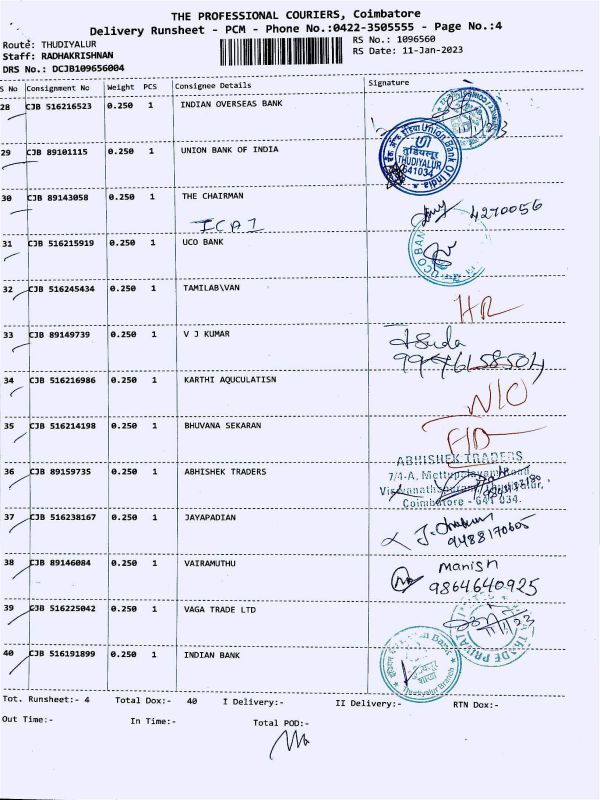 THE PROFESSIONAL COURIERS, Coimbatore
Delivery Runsheet - PCM - Phone No.:0422-3505555 - Page No.:4
Route: THUDIYALUR
RS No.: 1096560
Staff: RADHAKRISHNAN
RS Date: 11-Jan-2023
DRS No.: DCJB109656004
S No Consignment No Weight PCS Consignee Details Signature
28 CJB 516216523 0.250 1 INDIAN OVERSEAS BANK
29 CJB 89101115 0.250 1 UNION BANK OF INDIA
Union Bank Of India
THUDIYALUR
641034
30 CJB 89143058 0.250 1 THE CHAIRMAN
4270056
ICAI
31 CJB 516215919 0.250 1 UCO BANK
UCO BAN
32 CJB 516245434 0.250 1 TAMILAB\VAN
HR
33 CJB 89149739 0.250 1 V J KUMAR
34 CJB 516216986 0.250 1 KARTHI AQUCULATISN
N/O
35 CJB 516214198 0.250 1 BHUVANA SEKARAN
36 CJB 89159735 0.250 1 ABHISHEK TRADERS
ABHISHEK TRADERS
7/4-A, Mettupalayam Road,
Coimbatore - 641 034.
37 CJB 516238167 0.250 1 JAYAPADIAN
9488170605
38 CJB 89146084 0.250 1 VAIRAMUTHU
Manish
9864640925
39 CJB 516225042 0.250 1 VAGA TRADE LTD
40 CJB 516191899 0.250 1 INDIAN BANK
Thudiyalur Branch
Tot. Runsheet:- 4 Total Dox:- 40 I Delivery:- II Delivery:- RTN Dox:-
Out Time:- In Time:- Total POD:-